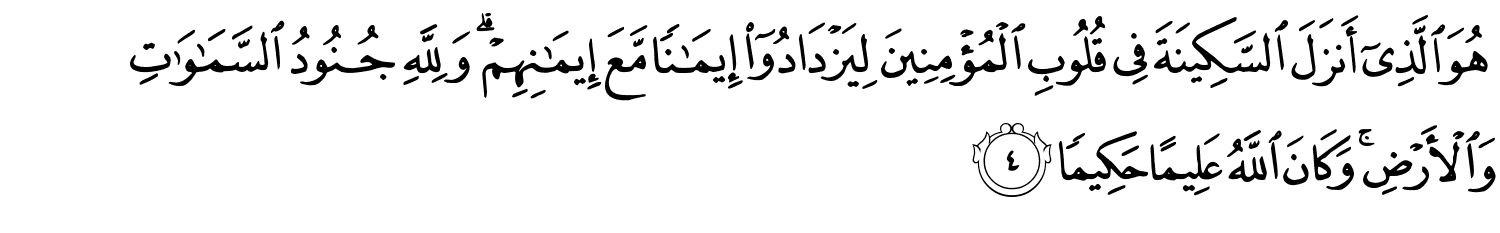 هُوَ ٱلَّذِىٓ أَنزَلَ ٱلسَّكِينَةَ فِى قُلُوبِ ٱلْمُؤْمِنِينَ لِيَزْدَادُوٓا۟ إِيمَـٰنًا مَّعَ إِيمَـٰنِهِمْ ۗ وَلِلَّهِ جُنُودُ ٱلسَّمَـٰوَٰتِ
وَٱلْأَرْضِ ۚ وَكَانَ ٱللَّهُ عَلِيمًا حَكِيمًا ٤